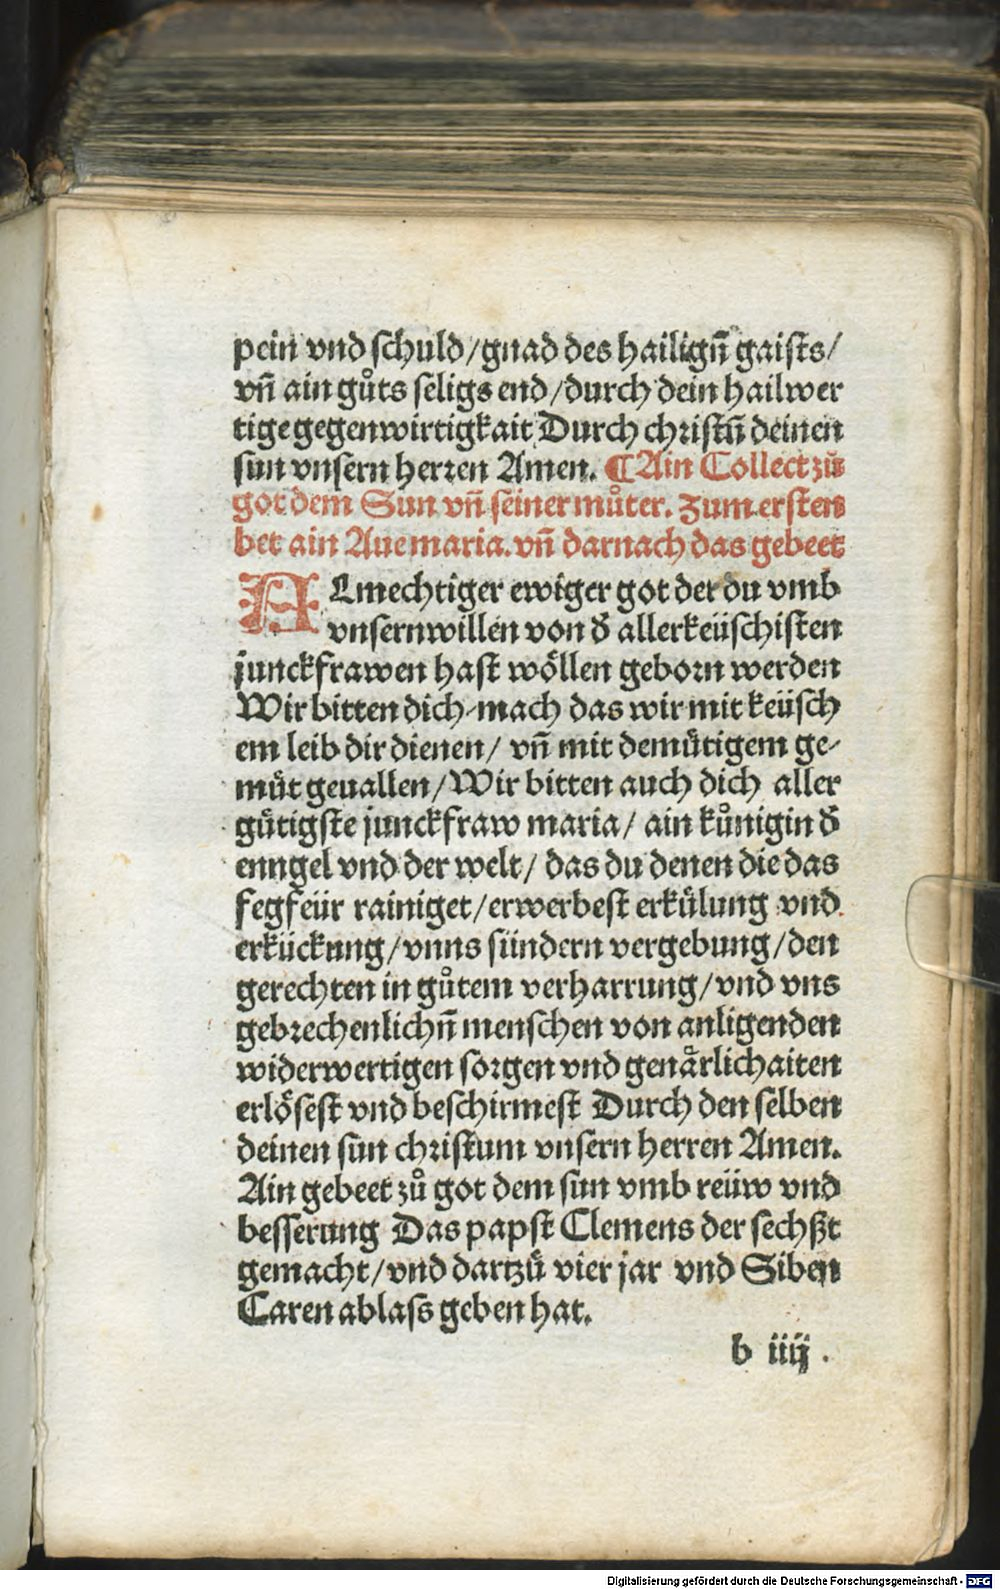 pein vnd schuld/gnad des hailigñ gaists/
vñ ain gůts seligs end/durch dein hailwer
tige gegenwirtigkait Durch christũ deinen
sun vnsern herren Amen. ¶Ain Collect zů
got dem Sun vñ seiner můter. Zum ersten
bet ain Aue maria. vñ darnach das gebeet
ALmechtiger ewiger got der du vmb
vnsern willen von d̕ allerkeüschisten
junckfrawen hast wöllen geborn werden
Wir bitten dich mach das wir mit keüsch
em leib dir dienen/ vñ mit demütigem ge-
müt geuallen/Wir bitten auch dich aller
gütigste junckfraw maria/ ain kůnigin d̕
enngel vnd der welt/ das du denen die das
fegfeür rainiget/erwerbest erkülung vnd
erkückung/vnns sündern vergebung/den
gerechten in gůtem verharrung/vnd vns
gebrechenlichñ menschen von anligenden
widerwertigen sorgen vnd genärlichaiten
erlösest vnd beschirmest Durch den selben
deinen sun christum vnsern herren Amen.
Ain gebeet zů got dem sun vmb reüw vnd
besserung Das papst Clemens der sechßt
gemacht/vnd dartzů vier jar vnd Siben
Caren ablass geben hat.
b iiij .
Digitalisierung gefördert durch die Deutsche Forschungsgemeinschaft - DFG